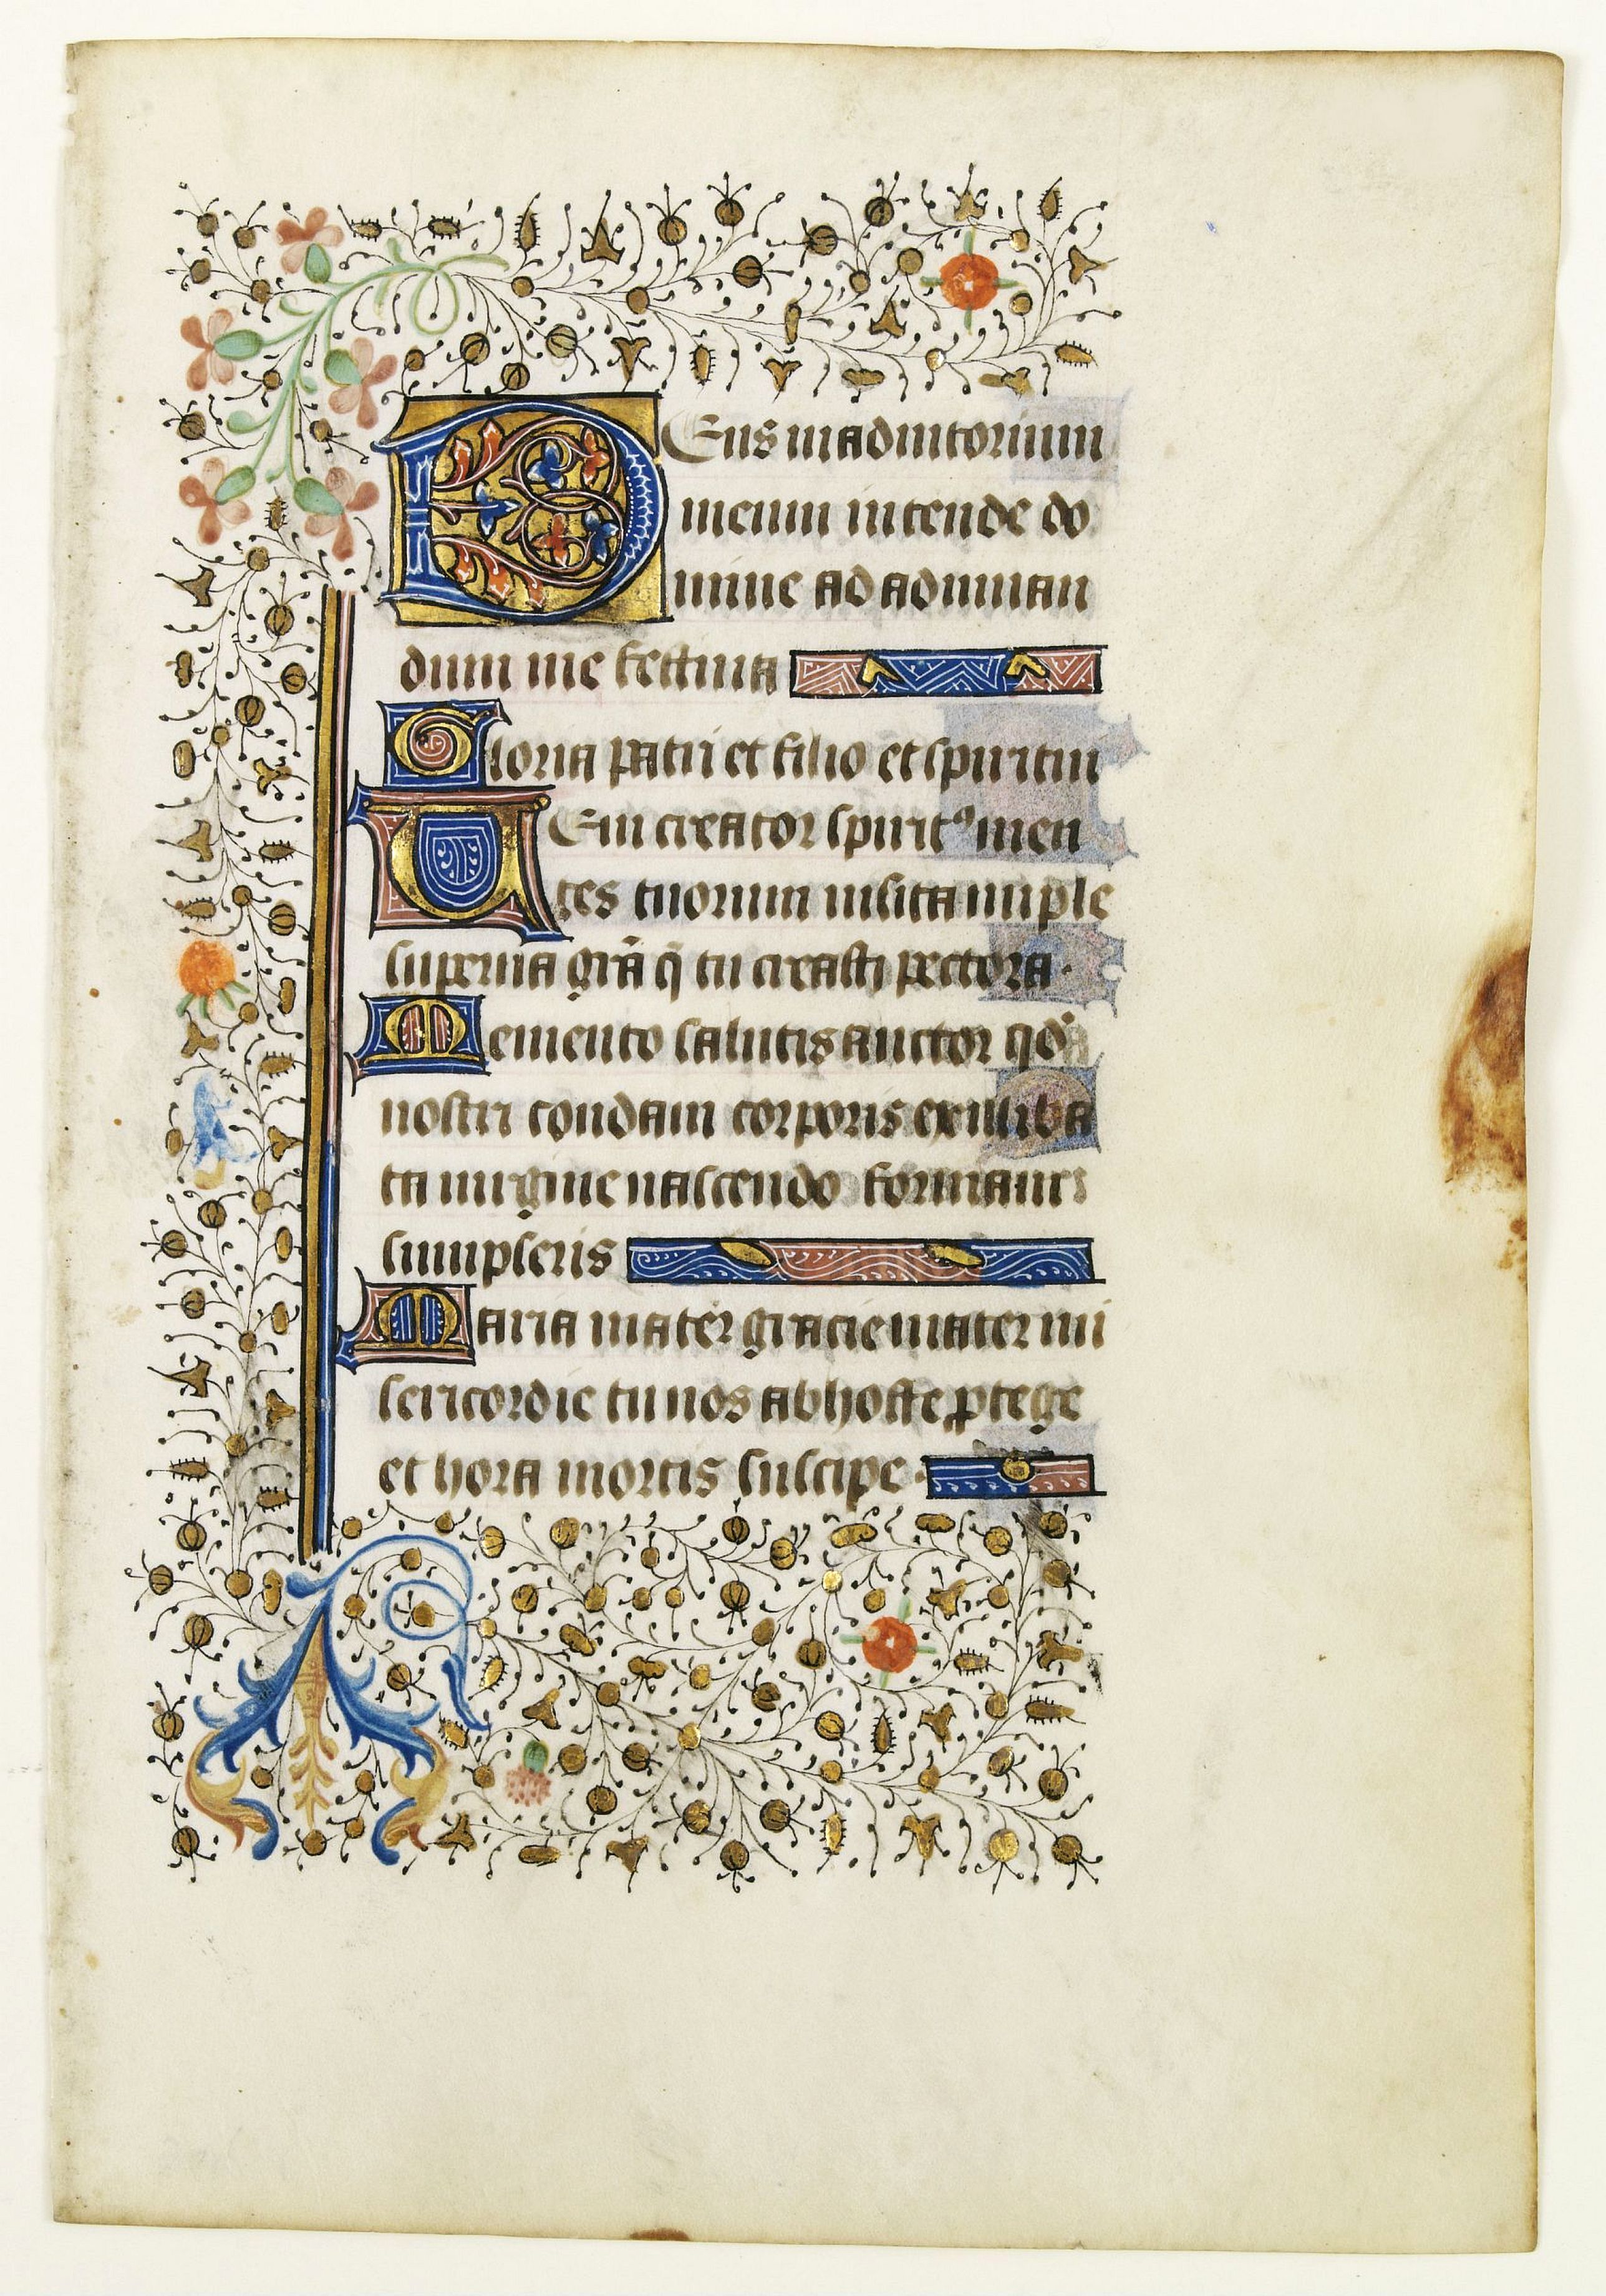 DEus in adiutorium
meum intende do
mine ad adiuuan
dum me festina
Gloria patri et filio et spiritui
UEni creator spiritꝰ men
tes tuorum uisita imple
superna grā q̄ tu creasti pectora.
Memento salutis auctor qd̄
nostri condam corporis ex illiba
ta uirgine nascendo formam
sumpseris
Maria mater gracie mater mi
sericordie tu nos ab hoste ꝓtege
et hora mortis suscipe.